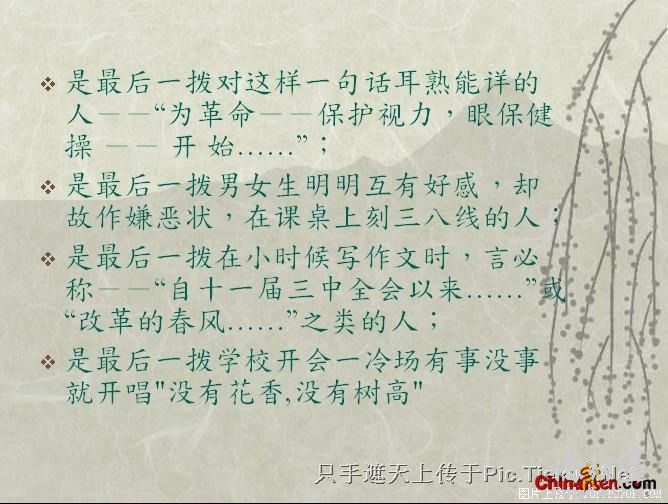 ❖ 是最后一拨对这样一句话耳熟能详的
人——“为革命——保护视力，眼保健
操 —— 开 始......”；
❖ 是最后一拨男女生明明互有好感，却
故作嫌恶状，在课桌上刻三八线的人；
❖ 是最后一拨在小时候写作文时，言必
称——“自十一届三中全会以来......”或
“改革的春风......”之类的人；
❖ 是最后一拨学校开会一冷场有事没事
就开唱"没有花香,没有树高"
只手遮天上传于Pic.Tiexue.Net
.com